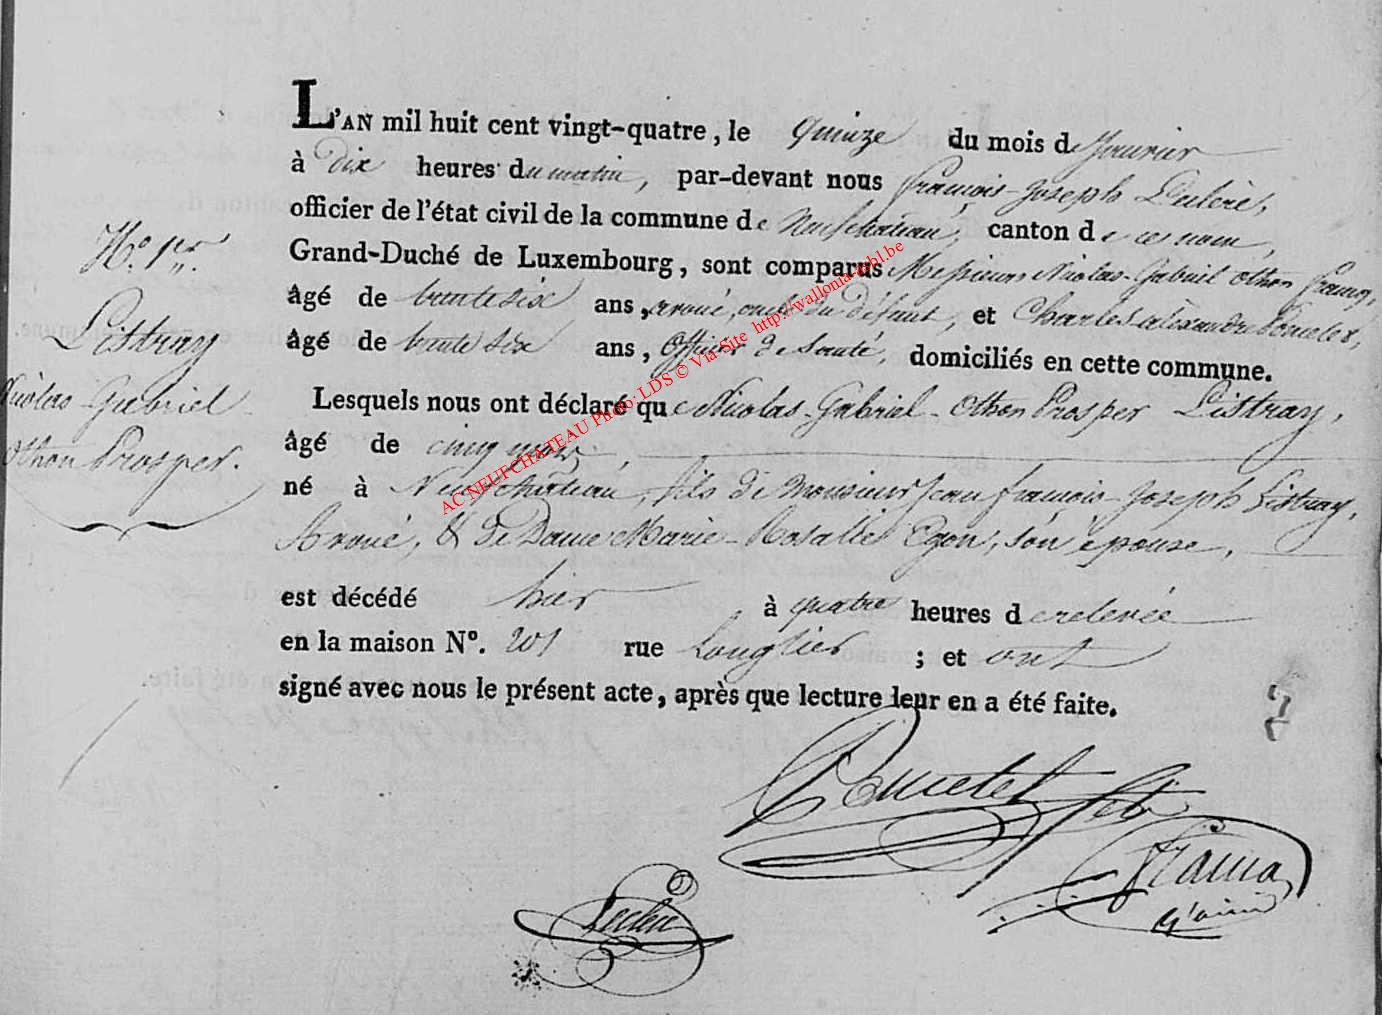 L'AN mil huit cent vingt-quatre, le quinze du mois de Janvier
à dix heures du matin, par-devant nous françois-Joseph Leclerc,
officier de l'état civil de la commune de Neufchateau, canton de ce nom,
Grand-Duché de Luxembourg, sont comparus Messieurs Nicolas-Gabriel Othon
âgé de trente six ans, avoué, oncle du défunt, et Charles alexandre Poncelet,
âgé de trente six ans, Officier de Santé, domiciliés en cette commune.
Lesquels nous ont déclaré que Nicolas-Gabriel-Othon Prosper Listray,
âgé de cinq mois
né à Neufchateau, fils de Monsieur Jean françois-Joseph Listray,
Avoué, & de Dame Marie-Rosalie son épouse,
est décédé hier à quatre heures de relevée
en la maison N°. 201 rue Longlier ; et ont
signé avec nous le présent acte, après que lecture leur en a été faite.
N°. 1er.
Listray
Nicolas-Gabriel-
Othon Prosper.
AC NEUFCHATEAU Photo: LDS © Via-Site http://wallonia-asbl.be
Poncelet
Leclerc